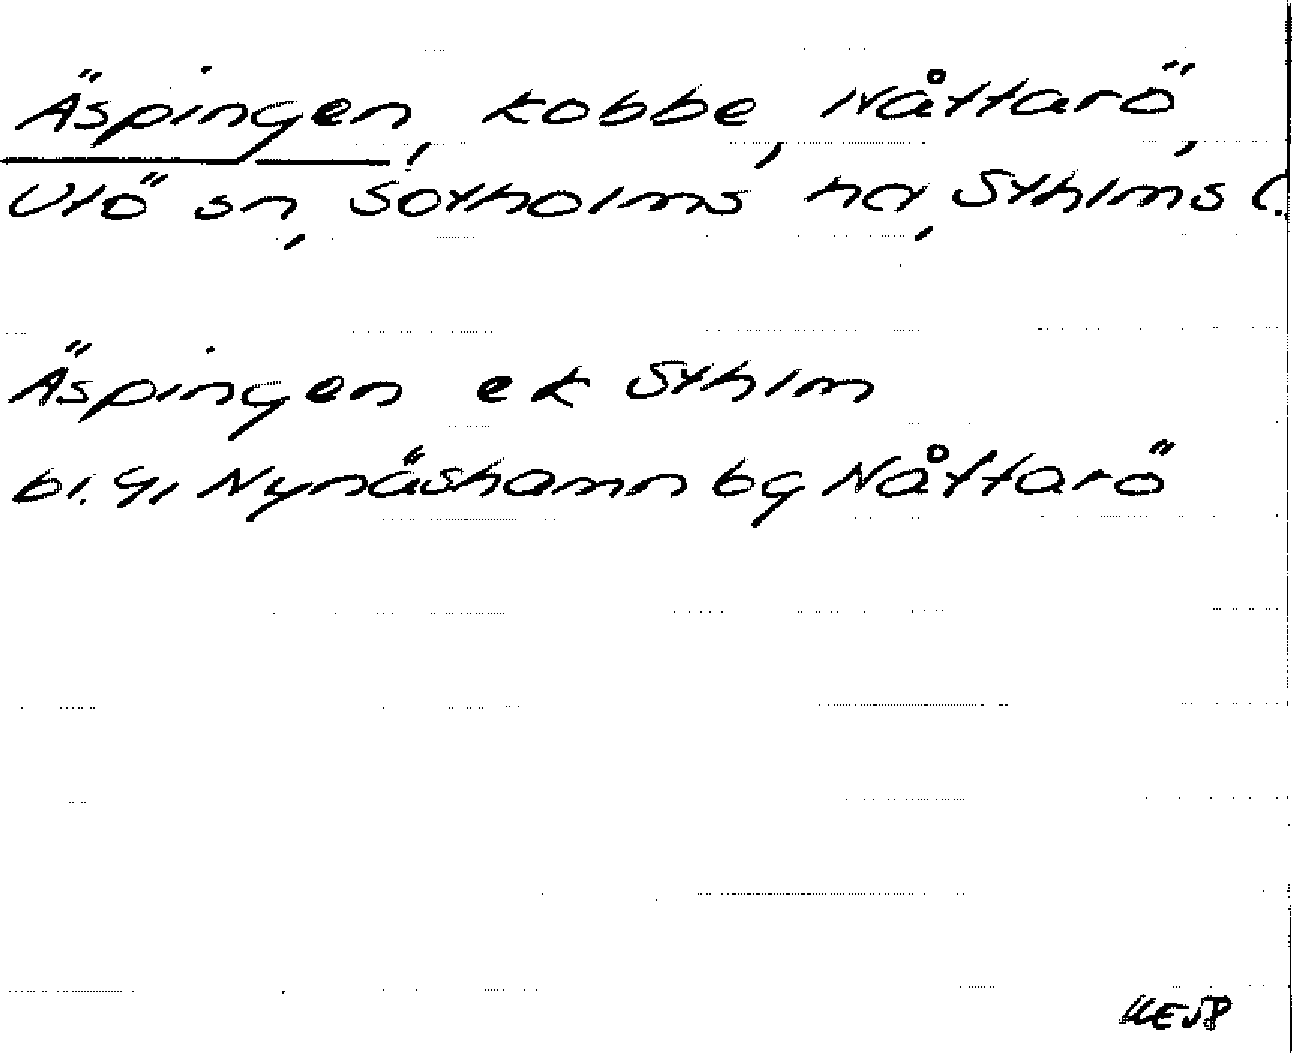 Äspingen, kobbe, Nåttarö,
Utö sn, Sotholms hd, Sthlms l.
Äspingen ek Sthlm
bl. 91 Nynäshamn bg Nåttarö